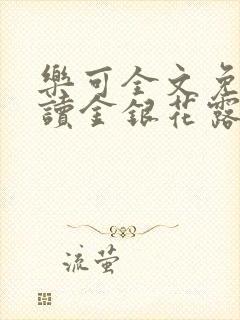 樂可全文免
讀金銀花露
流萤